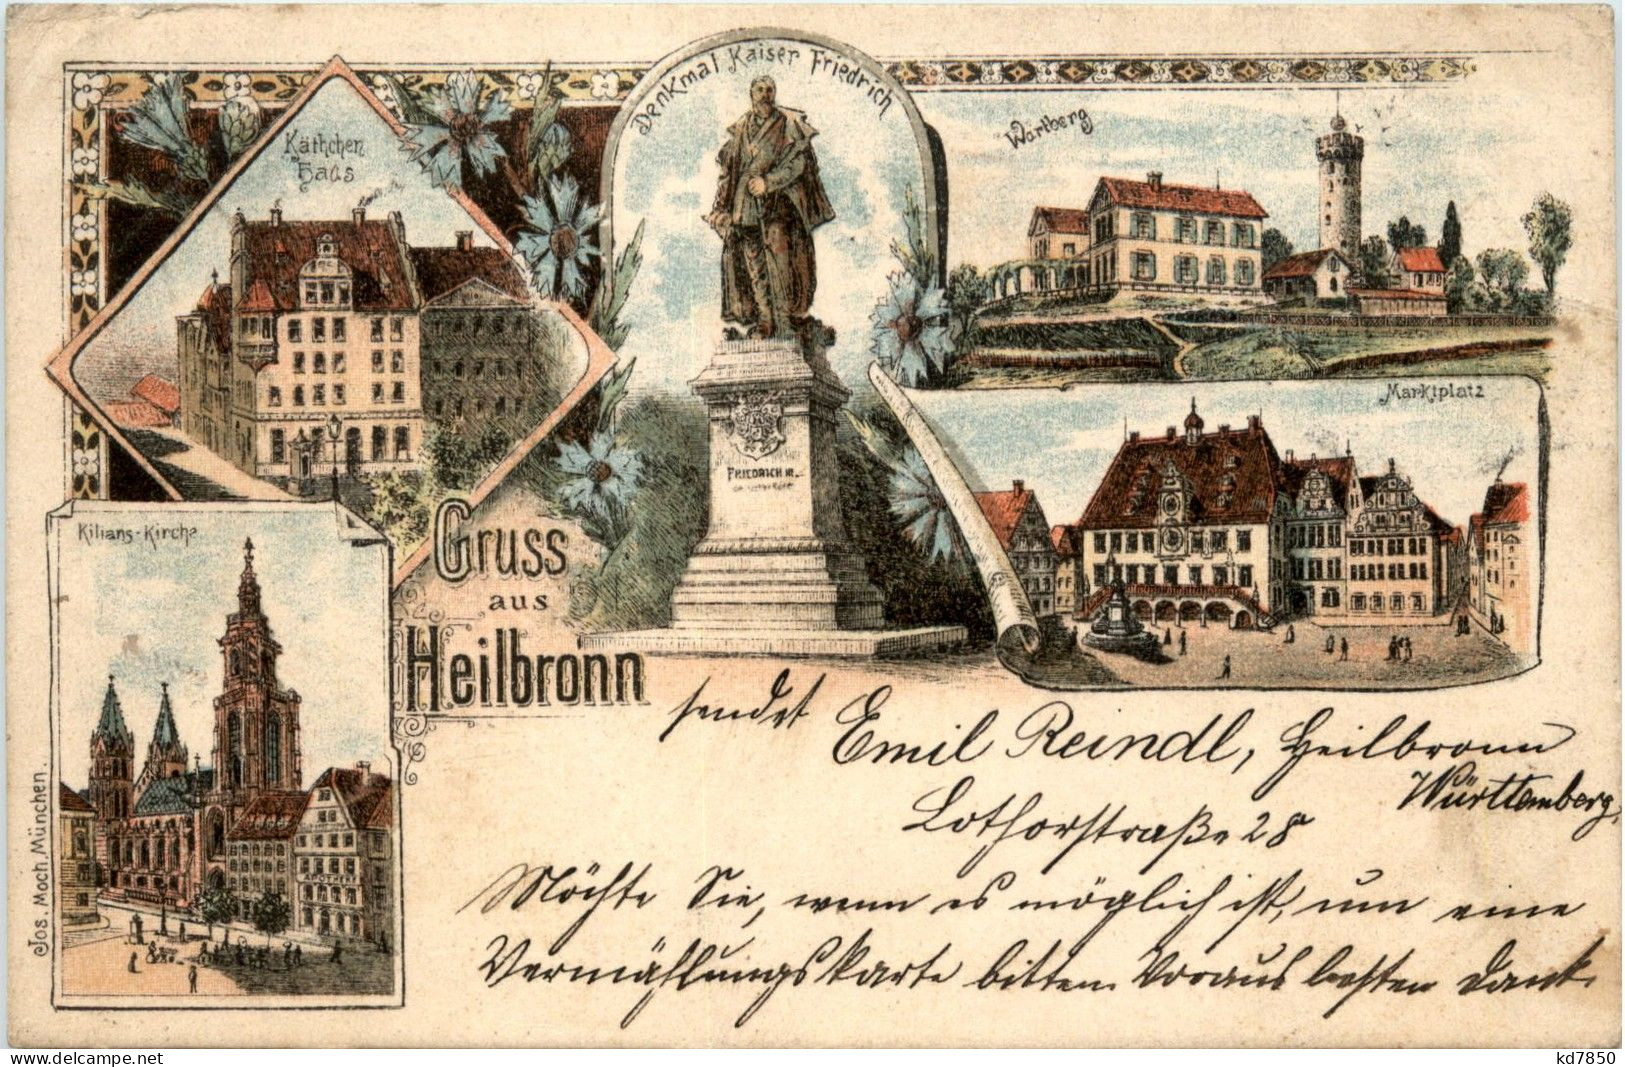 Denkmal Kaiser Friedrich
Käthchen
Haus
Wartberg
Marktplatz
FRIEDRICH III.
Kilians-Kirche
APOTHEKE
Gruss
aus
Heilbronn
Jos. Moch, München.
sendet Emil Reindl, Heilbronn
Württemberg,
Lothorstraße 28
Möchte Sie, wenn es möglich ist, um eine
Vermählungskarte bitten. Voraus besten Dank.
delcampe.net
kd7850